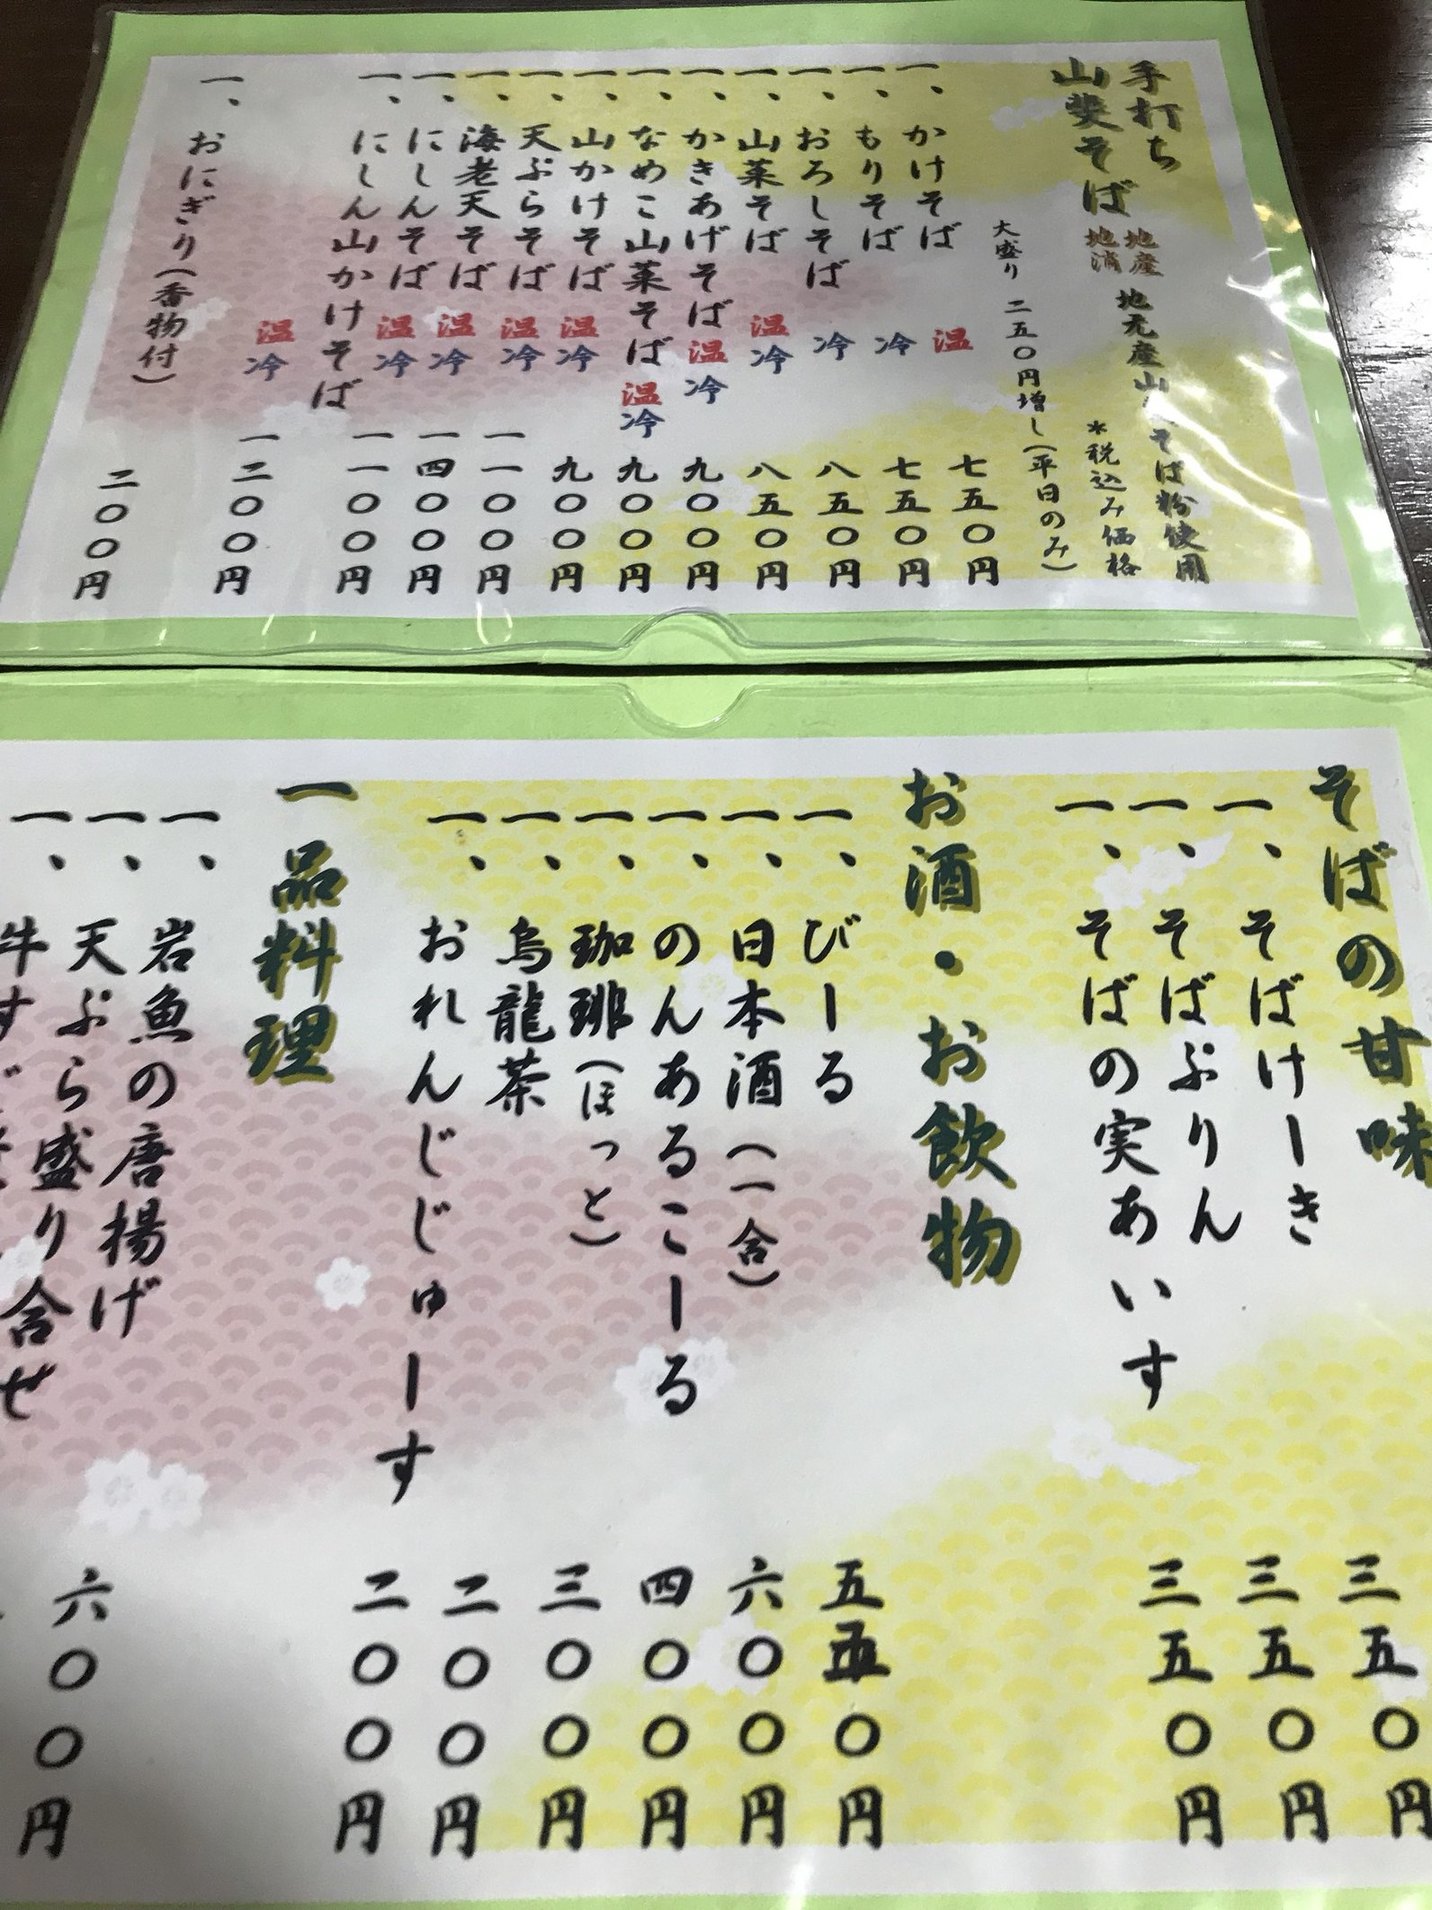 手打ち
山斐そば
地産
地消
地元産山
そば粉使用
*税込み価格
大盛り 二五〇円増し(平日のみ)
一、かけそば 温 七五〇円
一、もりそば 冷 七五〇円
一、おろしそば 冷 八五〇円
一、山菜そば 温冷 八五〇円
一、かきあげそば 温冷 九〇〇円
一、なめこ山菜そば 温冷 九〇〇円
一、山かけそば 温冷 九〇〇円
一、天ぷらそば 温冷 一一〇〇円
一、海老天そば 温冷 一四〇〇円
一、にしんそば 温冷 一一〇〇円
一、にしん山かけそば 温冷 一二〇〇円
一、おにぎり(香物付) 二〇〇円
そばの甘味
一、そばけーき 三五〇円
一、そばぷりん 三五〇円
一、そばの実あいす 三五〇円
お酒・お飲物
一、びーる 五五〇円
一、日本酒(一合) 六〇〇円
一、のんあるこーる 四〇〇円
一、珈琲(ほっと) 三〇〇円
一、烏龍茶 二〇〇円
一、おれんじじゅーす 二〇〇円
一品料理
一、岩魚の唐揚げ 六〇〇円
一、天ぷら盛り合せ
一、牛すじ